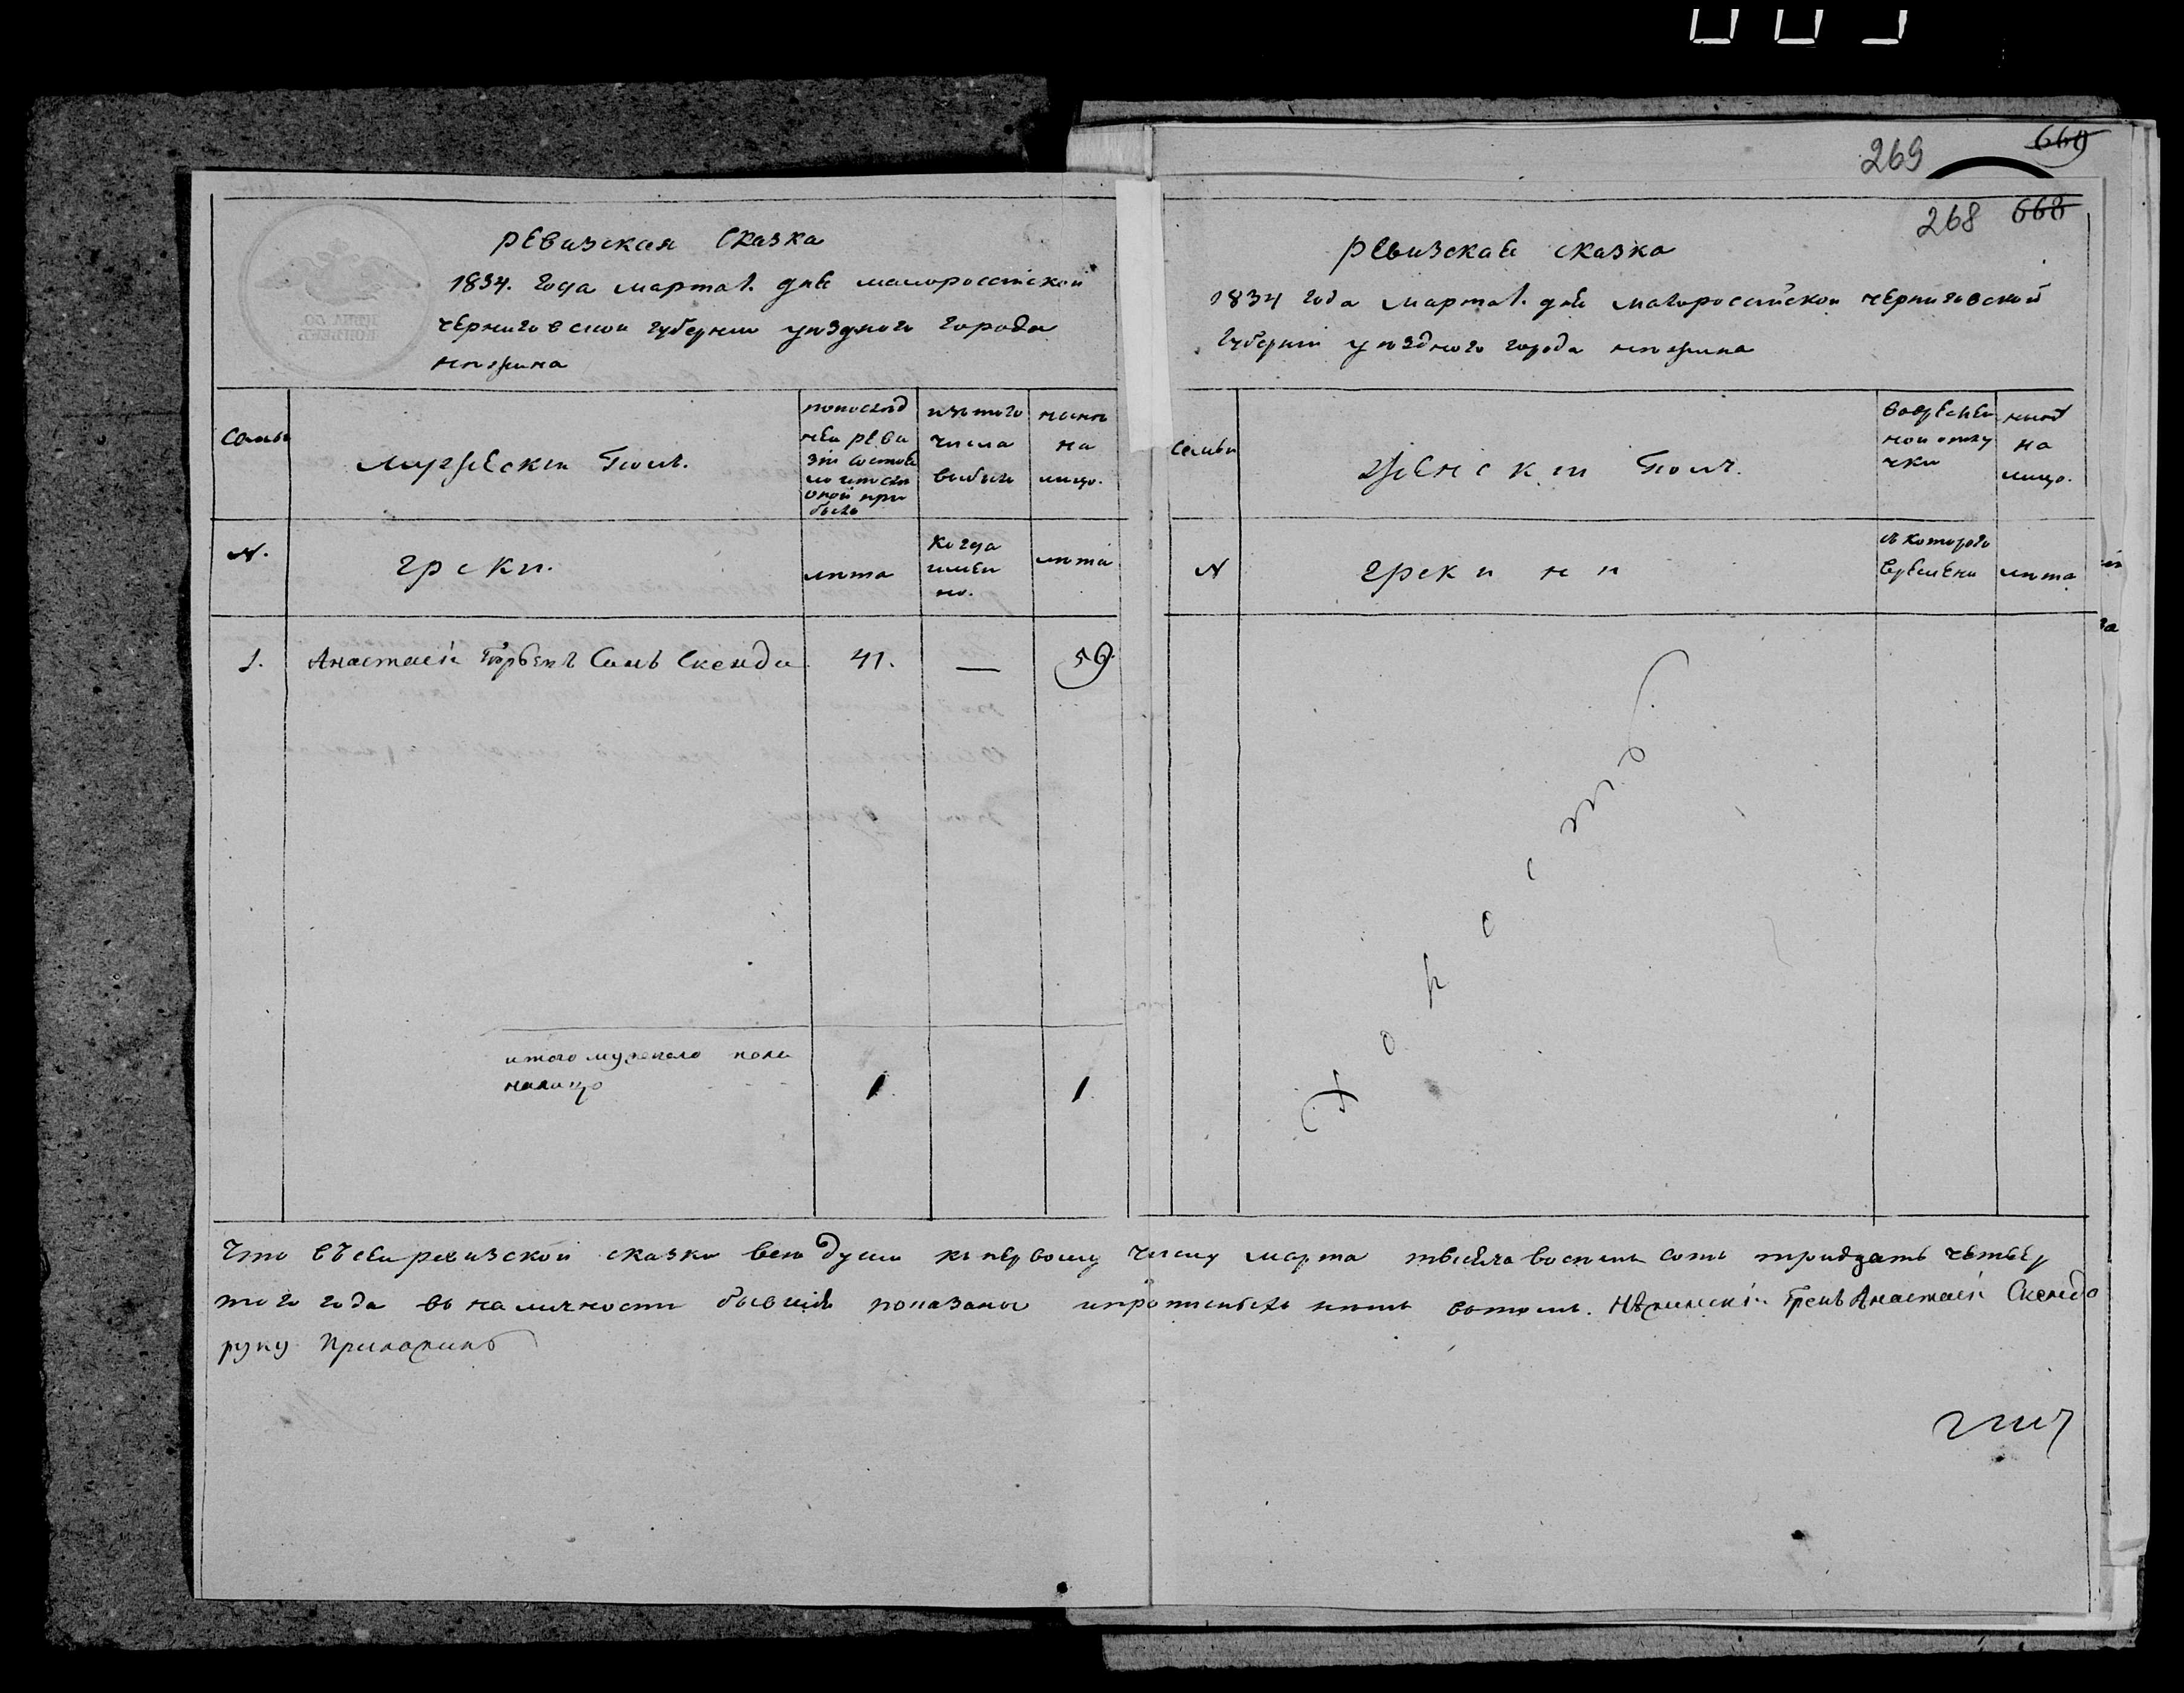 269 669
268 668
ревизская сказка
1834. года марта 1. дня малоросстской
черниговской губернии уѣздного города
нѣжина
Семьи
мужеский полъ.
попослѣд
ней реви
зіи состоя
ло ипослѣ
оной при
было
изътого
числа
выбыло
нынѣ
на
лицо.
№.
греки.
лѣта
когда
имен
но.
лѣта
1.
Анастасій Юрьевъ Сынъ Скенди
41.
—
59.
итого мужеского пола
налицо
1
1.
ревизская сказка
1834 года марта 1. дня малороссійской черниговской
губерніи уѣздного города нѣжина
Семьи
женский полъ.
вовремен
ной отлу
чки
нынѣ
на
лицо.
№
грекини
съ которого
времени
лѣта
Что въсей ревизской сказки всѣ души къ первому числу марта тысяча восемь сотъ тридцать четвер
того года въ наличности бывшія показаны ипрописныхъ нѣтъ вотомъ. Нѣжинскій Грекъ Анастасій Скенда
руку приложилъ